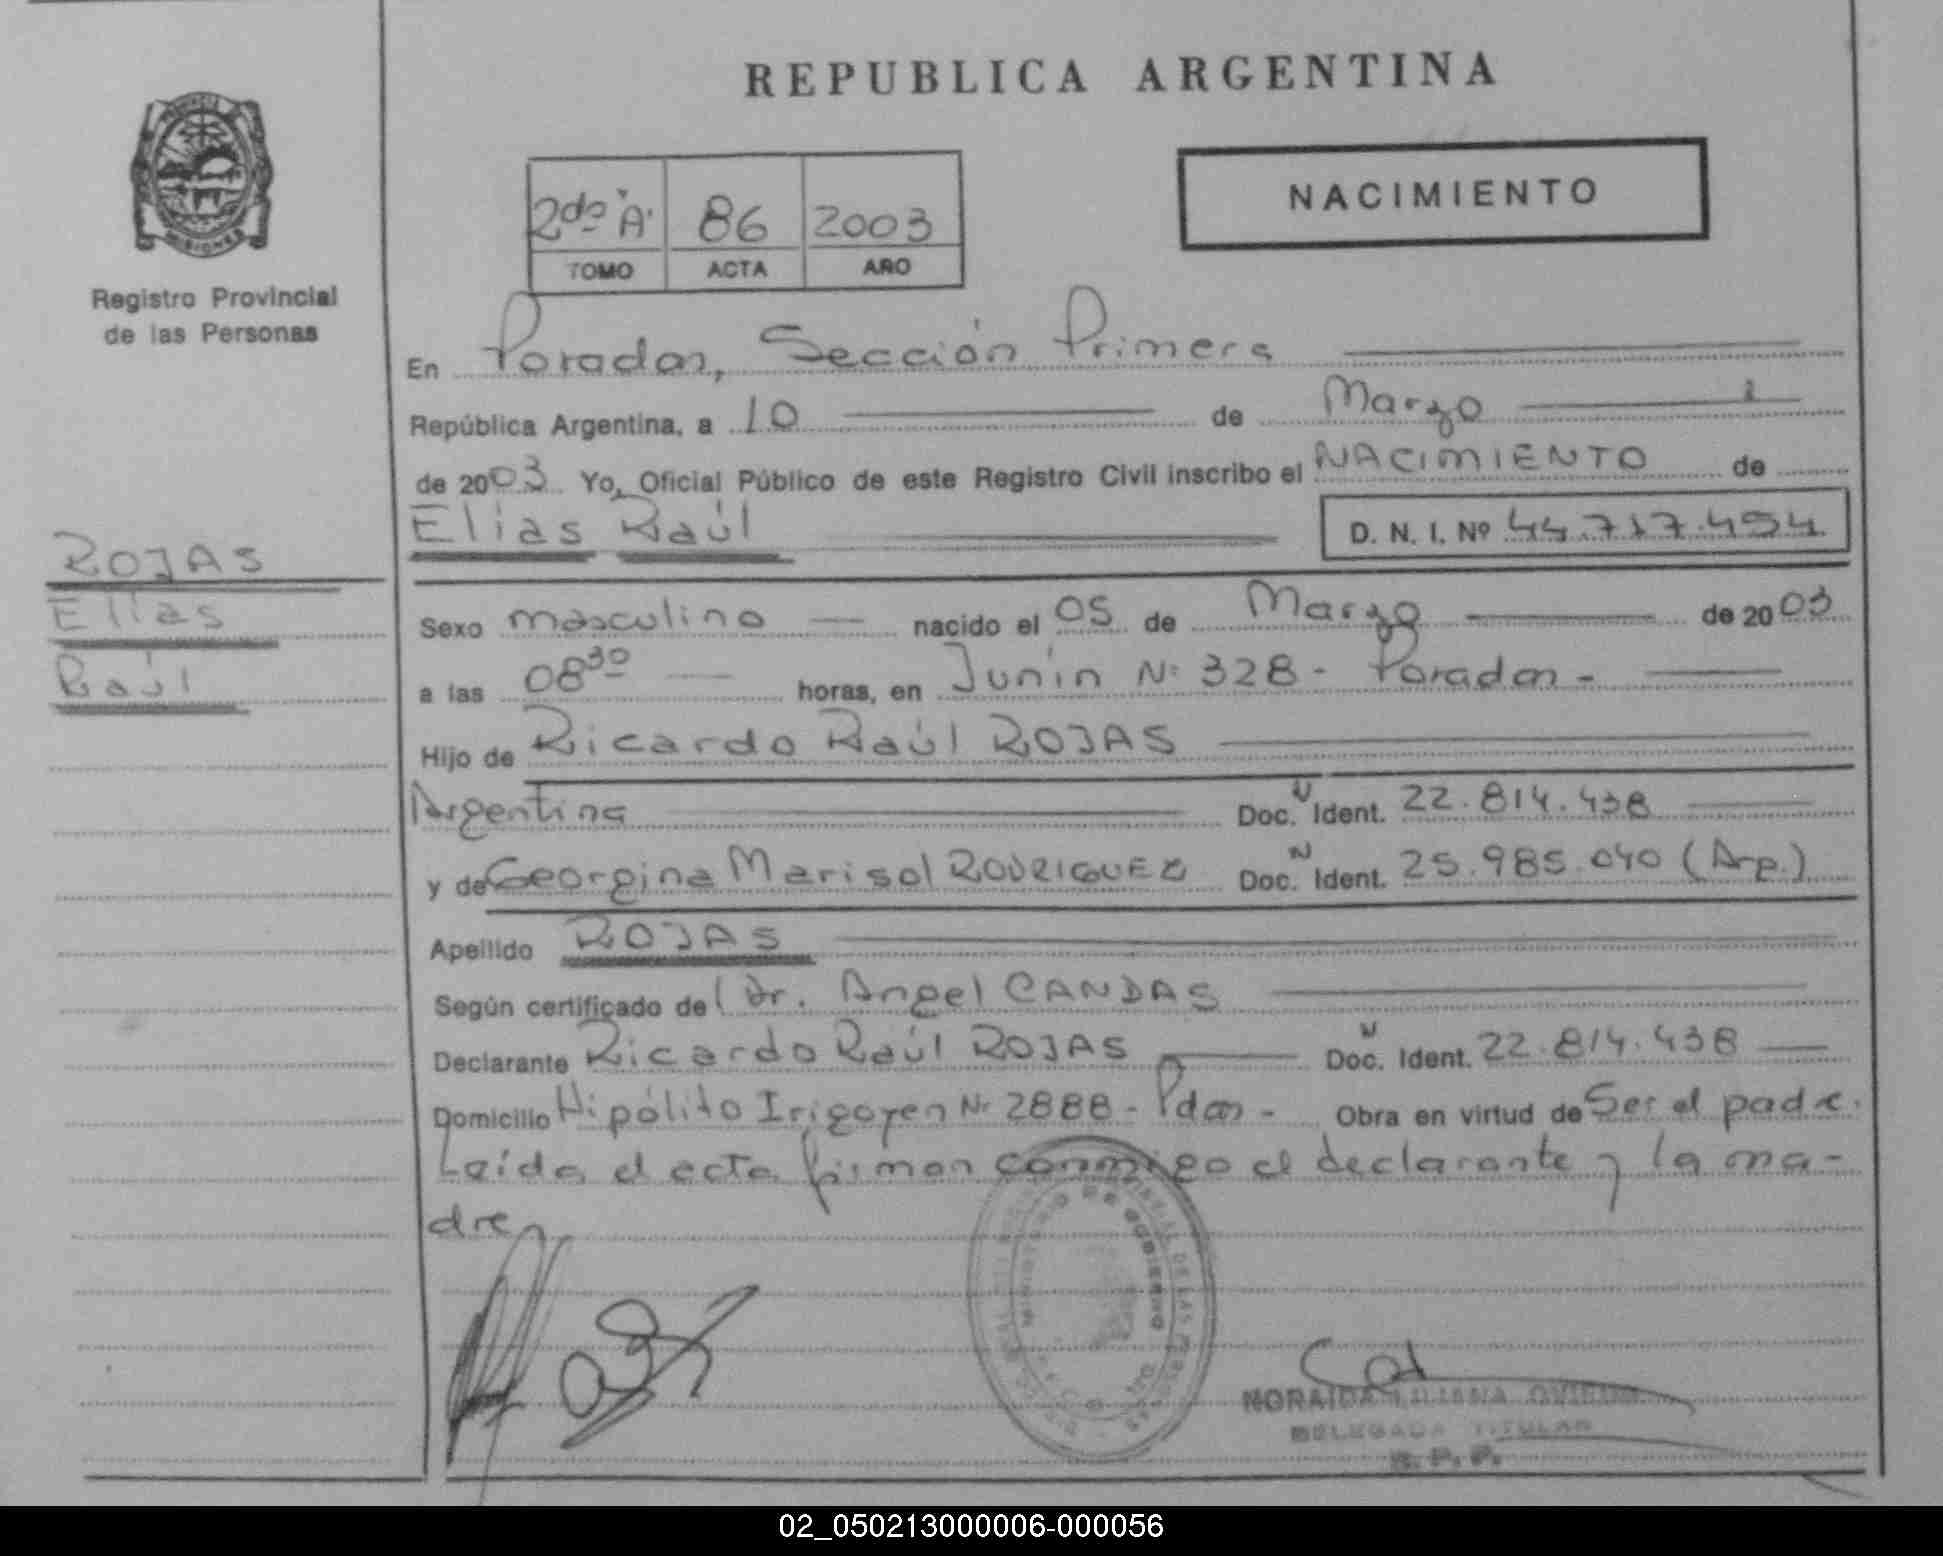 REPUBLICA ARGENTINA
NACIMIENTO
2do "A" 86 2003
TOMO ACTA AÑO
MISIONES
Registro Provincial
de las Personas
En Posadas, Sección Primera
República Argentina, a 10 de Marzo
de 2003 Yo, Oficial Público de este Registro Civil inscribo el NACIMIENTO de
Elias Raúl D. N. I. Nº 44.717.494
ROJAS
Elias
Raúl
Sexo masculino nacido el 05 de Marzo de 2003
a las 08 30 horas, en Junín Nº 328 - Posadas -
Hijo de Ricardo Raúl ROJAS
Argentina Doc. N Ident. 22.814.438
y de Georgina Marisol RODRIGUEZ Doc. N Ident. 25.985.040 (Arg.)
Apellido ROJAS
Según certificado de Dr. Angel CANDAS
Declarante Ricardo Raúl ROJAS Doc. N Ident. 22.814.438
Domicilio Hipólito Irigoyen Nº 2888 - Pdas - Obra en virtud de Ser el padre.
Leída el acta firman conmigo el declarante y la ma-
dre
MINISTERIO DE GOBIERNO
NORAIDA LILIANA OVIEDO
DELEGADA TITULAR
R. P. P.
02_050213000006-000056